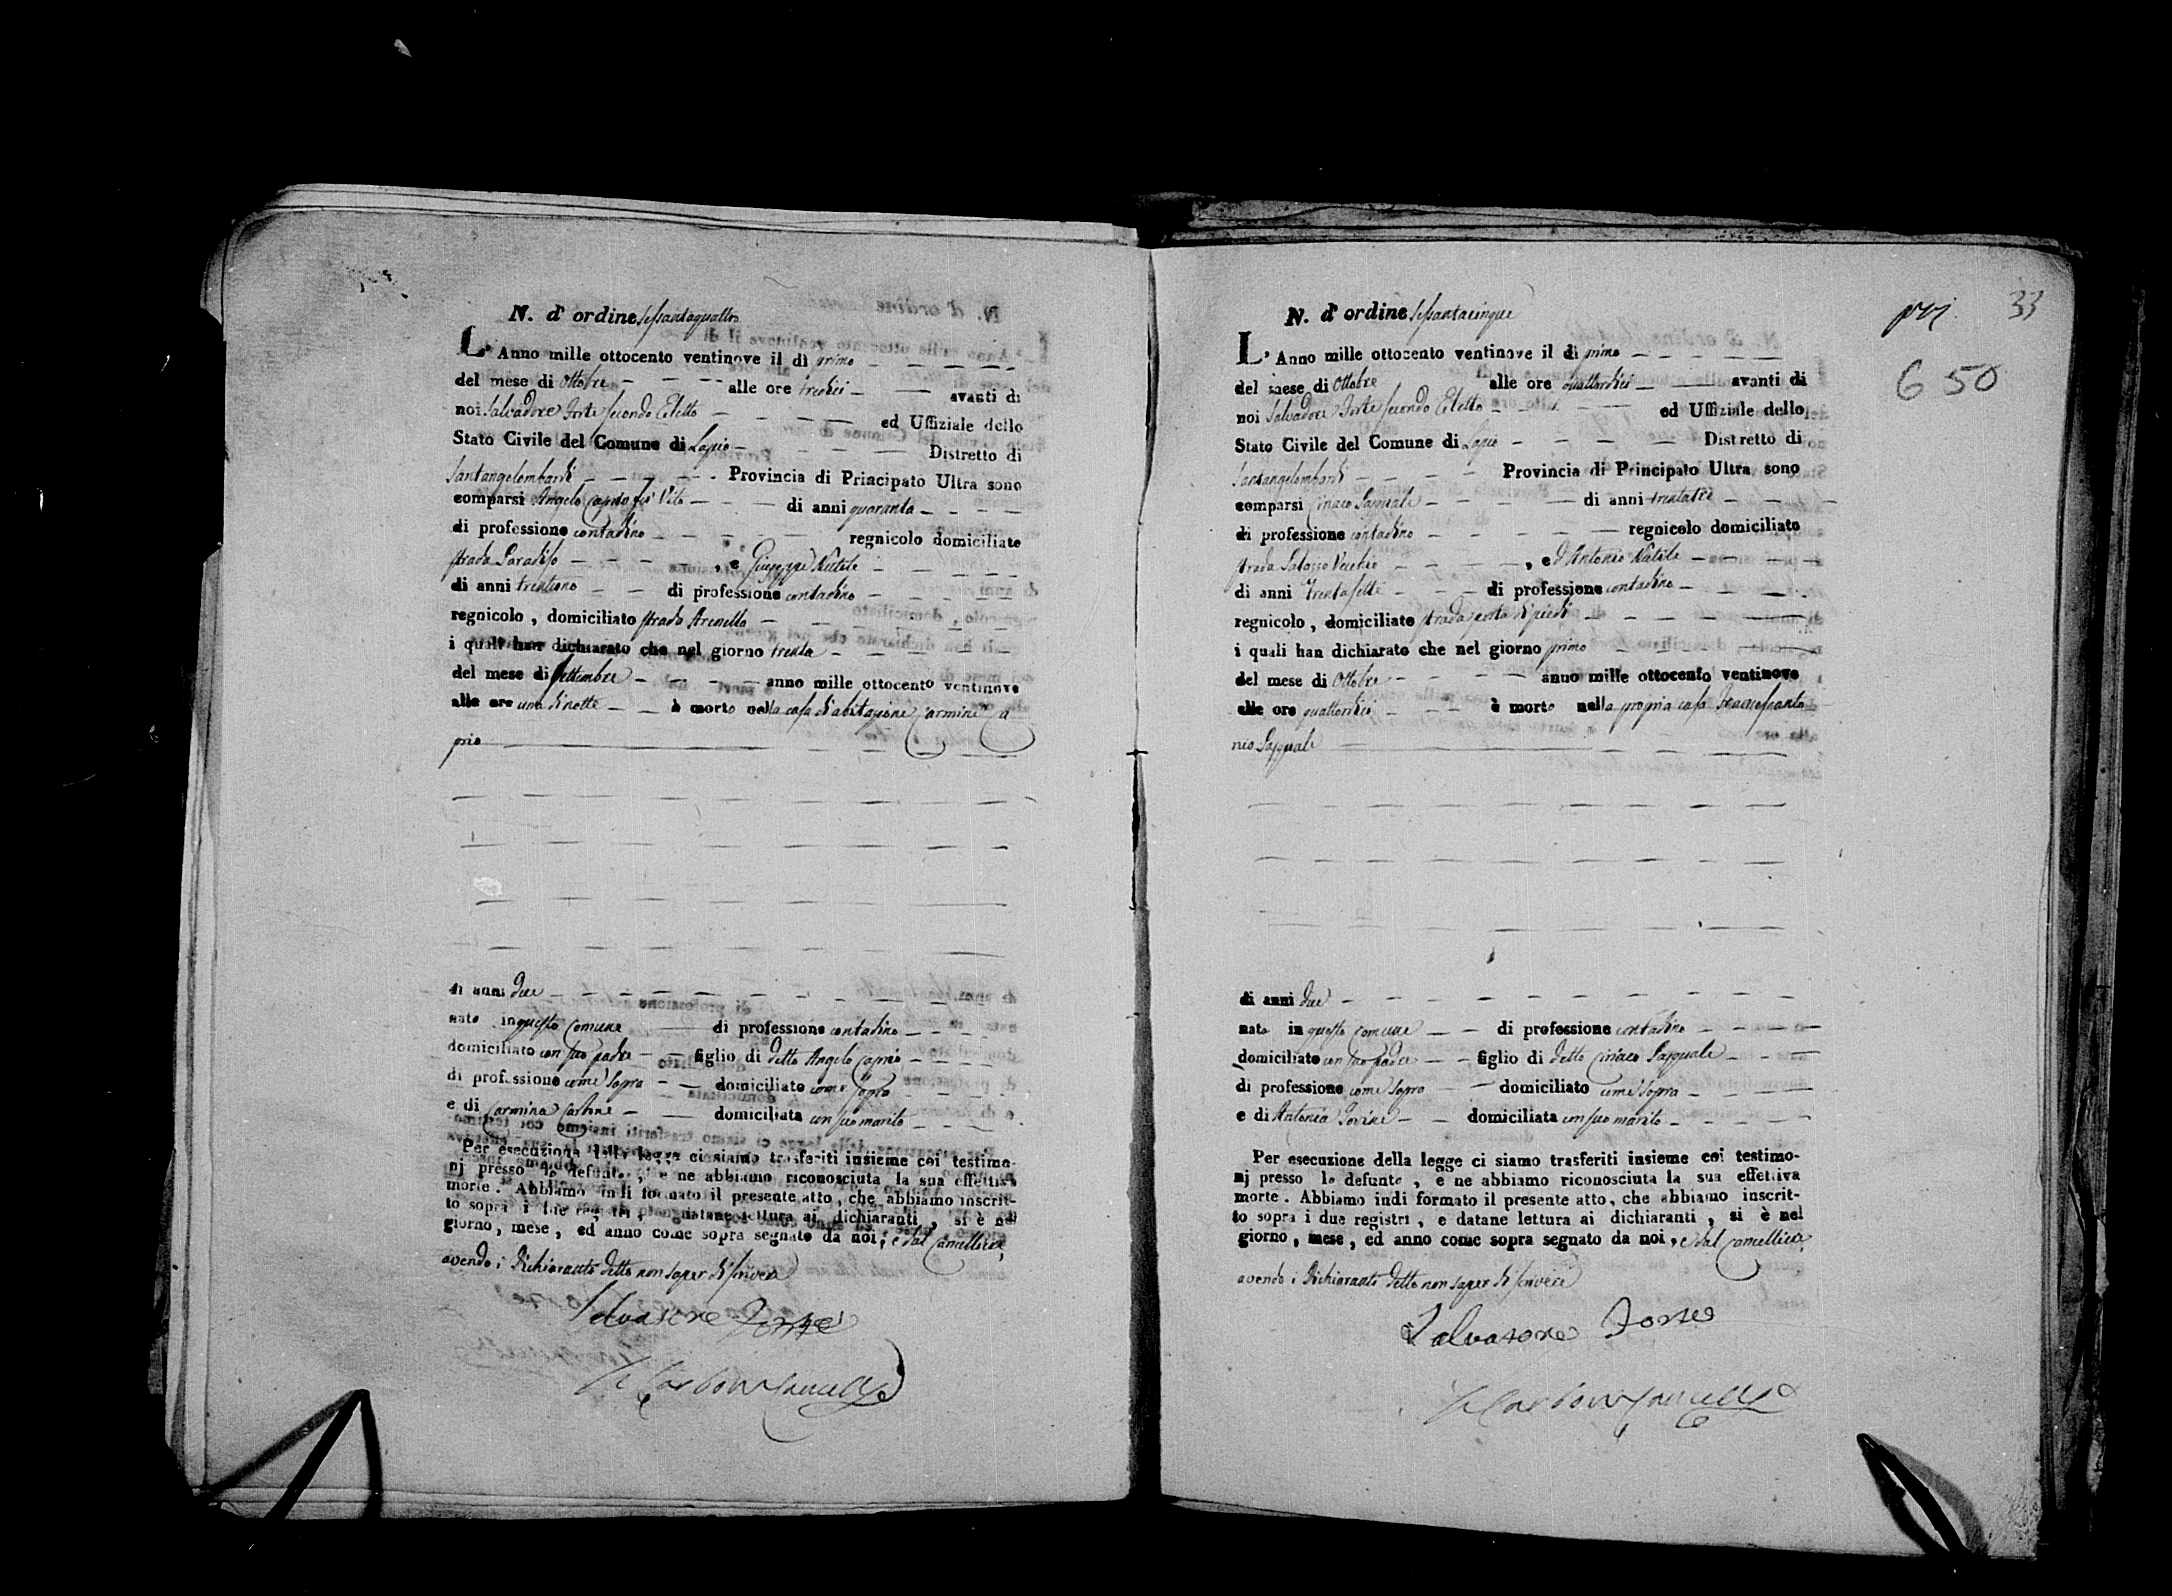 N. d'ordine sessantaquattro
L'Anno mille ottocento ventinove il dì primo
del mese di Ottobre alle ore tredici avanti di
noi Salvadore Forte secondo Eletto ed Uffiziale dello
Stato Civile del Comune di Lapio Distretto di
Santangelombardi Provincia di Principato Ultra sono
comparsi Angelo Caprio fu Vito di anni quaranta
di professione contadino regnicolo domiciliato
strada Paradiso , e Giuseppe Natale
di anni trentuno di professione contadino
regnicolo , domiciliato strada Arenella
i quali han dichiarato che nel giorno trenta
del mese di Settembre anno mille ottocento ventinove
alle ore una di notte è morto nella casa d'abitazione Carmine Ca
prio
di anni due
nato in questo Comune di professione contadino
domiciliato con suo padre figlio di detto Angelo Caprio
di professione come sopra domiciliato come sopra
e di Carmina Carbone domiciliata con suo marito
Per esecuzione della legge ci siamo trasferiti insieme coi testimo-
nj presso lo defunto , e ne abbiamo riconosciuta la sua effettiva
morte . Abbiamo indi formato il presente atto , che abbiamo inscrit-
to sopra i due registri , e datane lettura ai dichiaranti , si è nel
giorno , mese , ed anno come sopra segnato da noi , e dal Cancelliere,
avendo i Dichiaranti detto non saper di scrivere
Salvatore Forte
N. d'ordine sessantacinque
L'Anno mille ottocento ventinove il dì primo
del mese di Ottobre alle ore quattordici avanti di
noi Salvadore Forte secondo Eletto ed Uffiziale dello
Stato Civile del Comune di Lapio Distretto di
Santangelombardi Provincia di Principato Ultra sono
comparsi Ciriaco Pasquale di anni trentatre
di professione contadino regnicolo domiciliato
strada Palazzo Vecchio , e d'Antonio Natale
di anni trentasette di professione contadino
regnicolo , domiciliato strada porta di piedi
i quali han dichiarato che nel giorno primo
del mese di Ottobre anno mille ottocento ventinove
alle ore quattordici è morto nella propria casa Francescanto
nio Pasquale
di anni due
nato in questo Comune di professione contadino
domiciliato con suo padre figlio di detto Ciriaco Pasquale
di professione come sopra domiciliato come sopra
e di Antonia domiciliata con suo marito
Per esecuzione della legge ci siamo trasferiti insieme coi testimo-
nj presso lo defunto , e ne abbiamo riconosciuta la sua effettiva
morte . Abbiamo indi formato il presente atto , che abbiamo inscrit-
to sopra i due registri , e datane lettura ai dichiaranti , si è nel
giorno , mese , ed anno come sopra segnato da noi , e dal Cancelliere,
avendo i Dichiaranti detto non saper di scrivere
Salvatore Forte
33
650